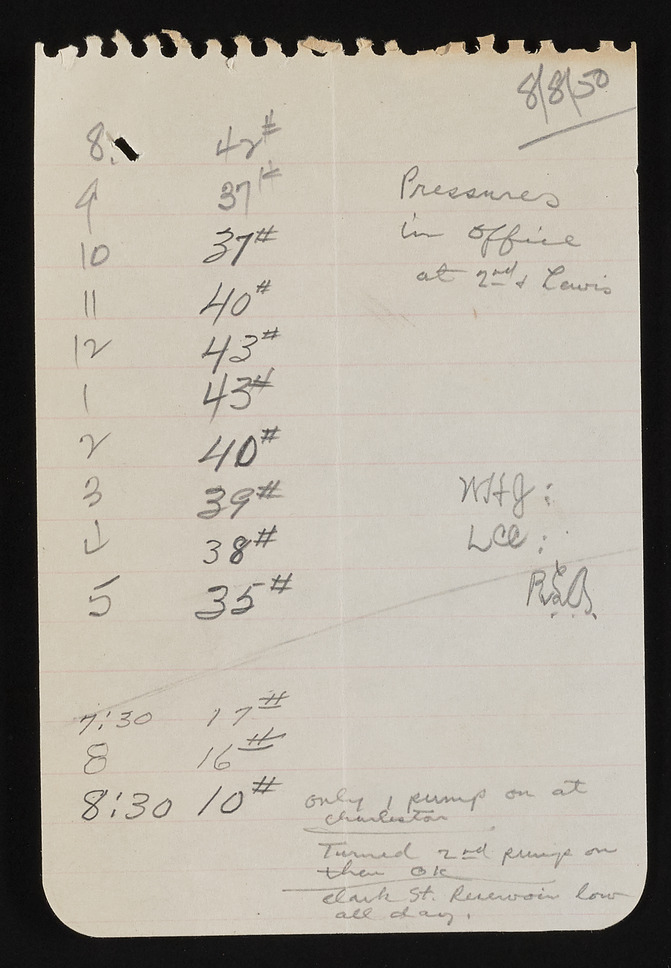 8/8/50
8. 42#
9 37#
Pressures
in office
10 37#
at 2nd & Lewis
11 40#
12 43#
1 43#
2 40#
3 39#
WHJ:
LCC:
4 38#
5 35#
7:30 17#
8 16#
8:30 10#
only 1 pump on at
Charleston
Turned 2nd pump on
then OK
Clark St. Reservoir low
all day.